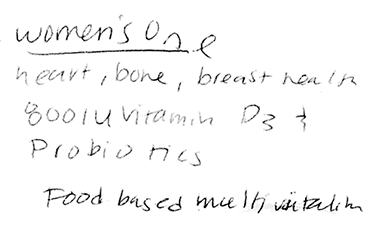 women's One
heart, bone, breast health
800IU Vitamin D3 &
Probiotics
Food based multi vitamin